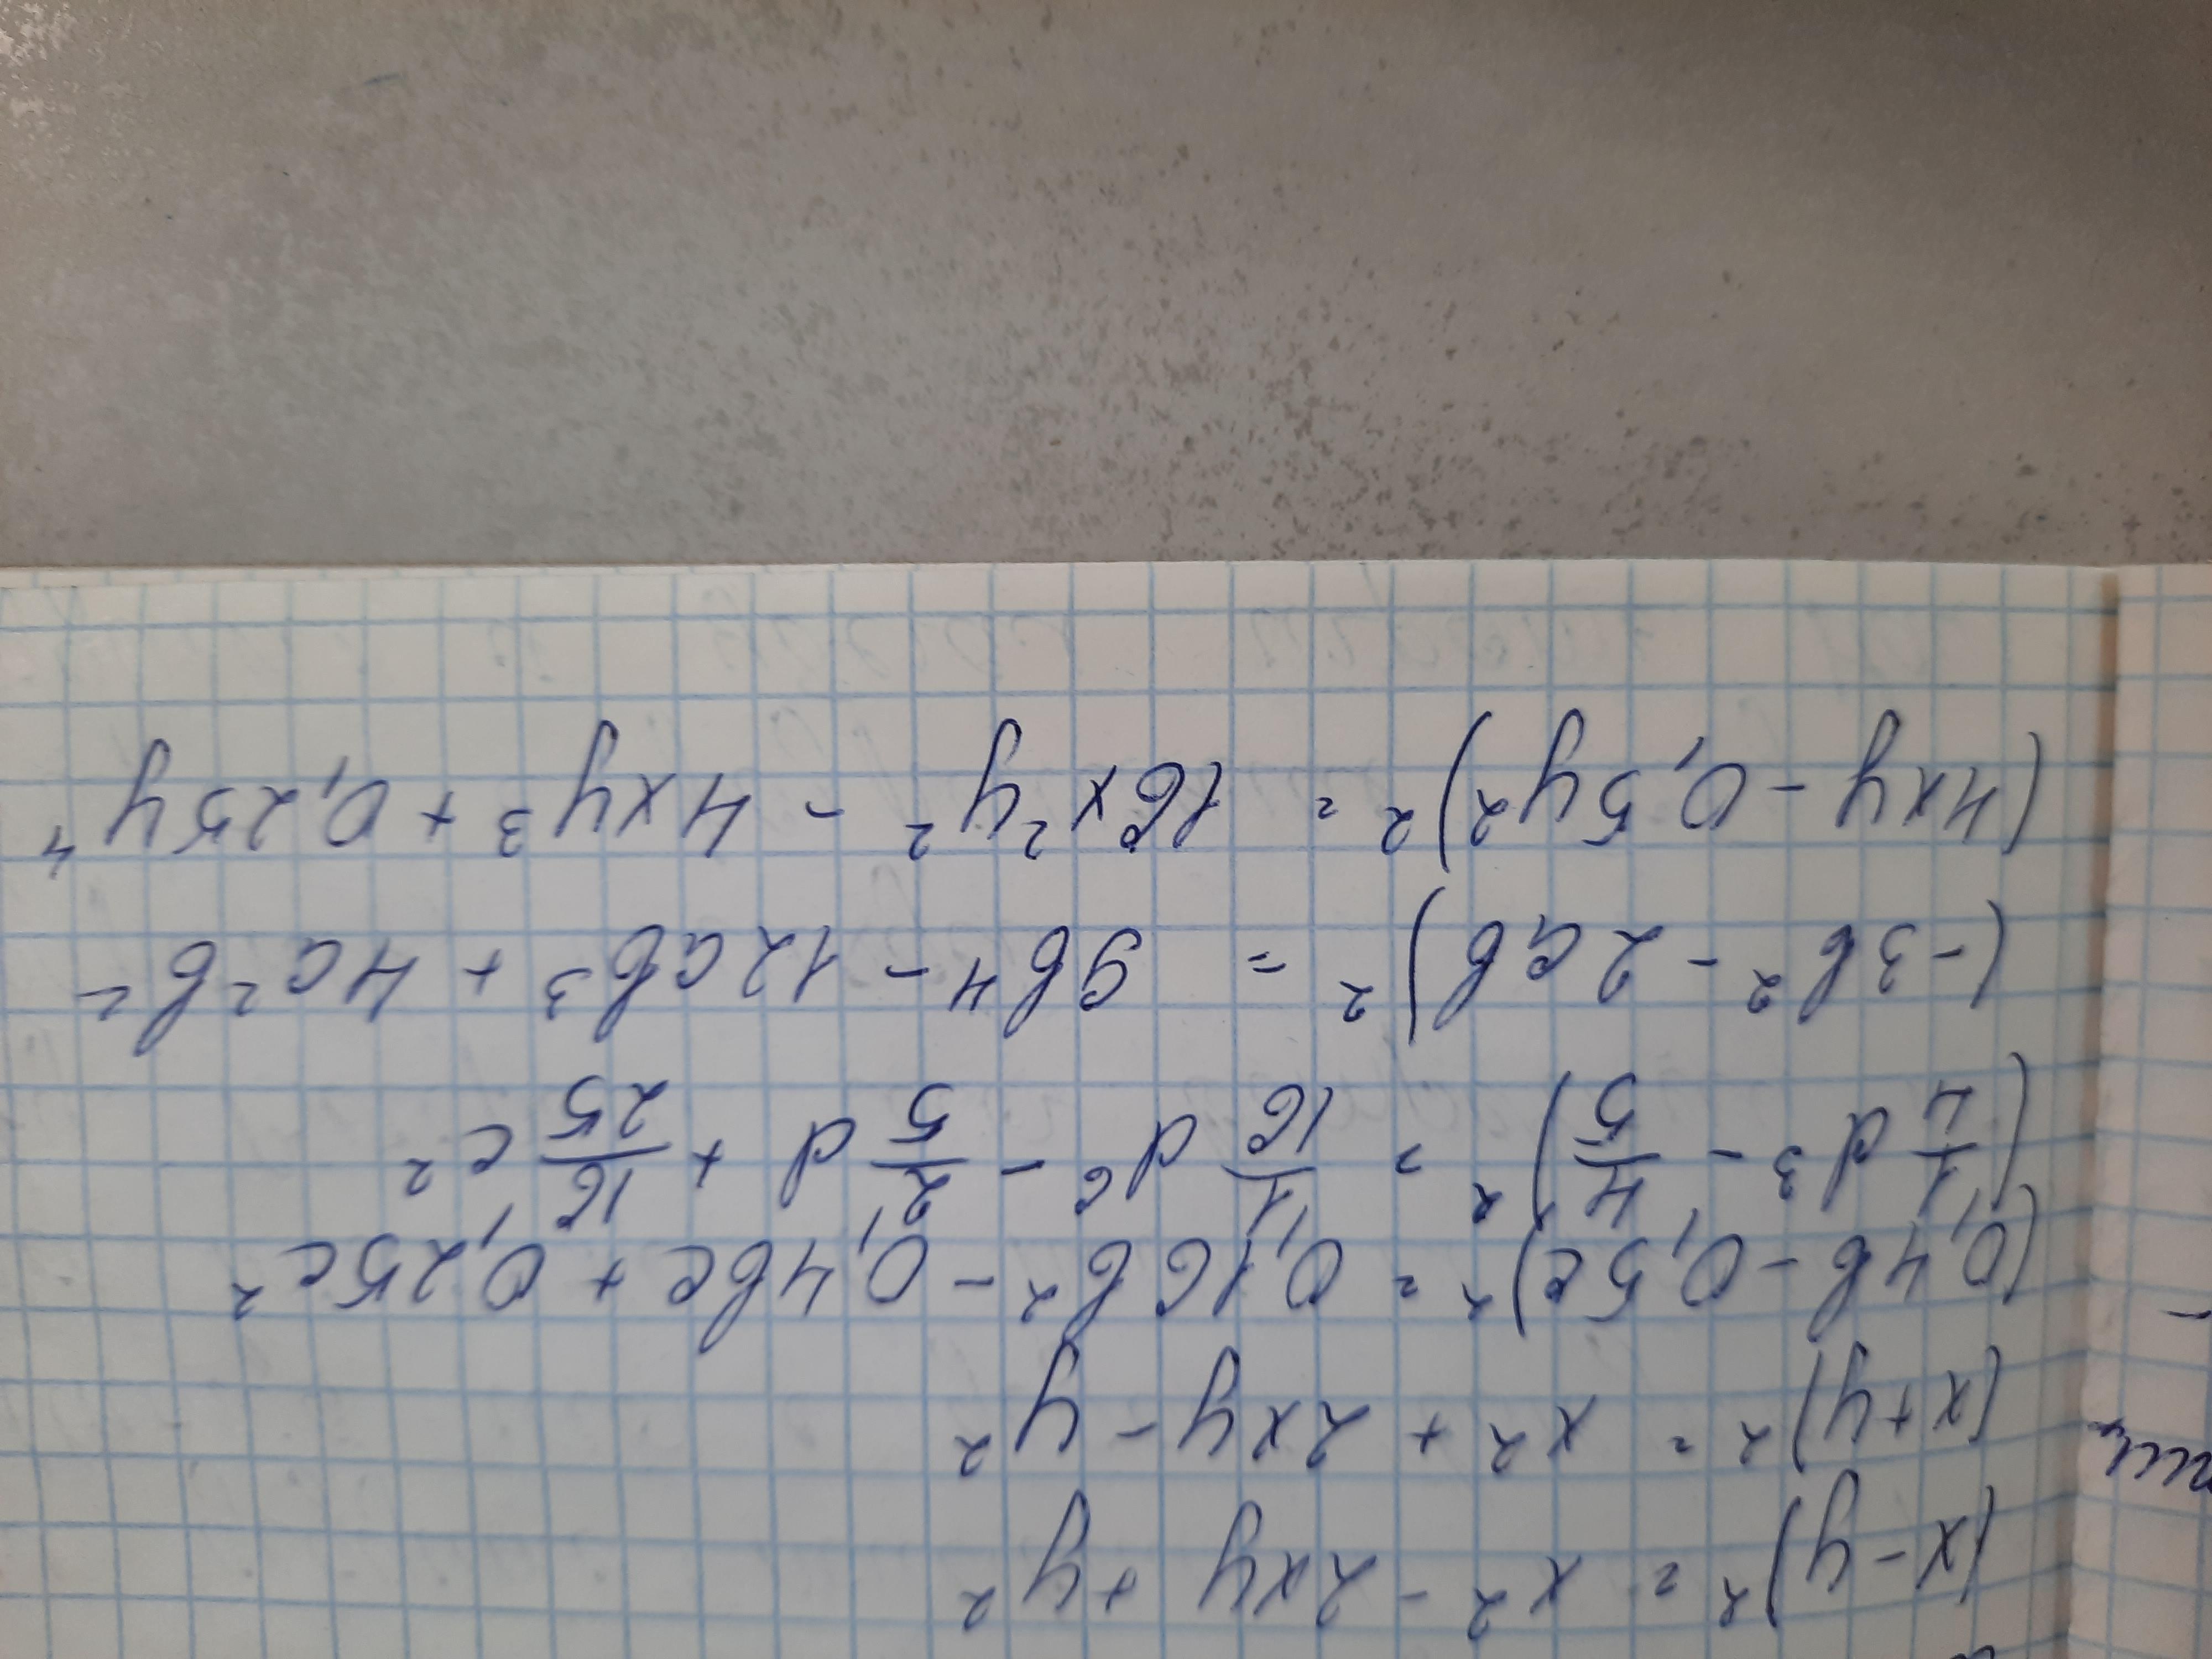 (x-y)² = x² - 2xy + y²
(x+y)² = x² + 2xy - y²
(0,4b - 0,5c)² = 0,16b² - 0,4bc + 0,25c²
(1/4 d³ - 4/5)² = 1/16 d⁶ - 2/5 d + 16/25 c²
(-3b² - 2ab)² = 9b⁴ - 12ab³ + 4a²b²
(4xy - 0,5y²)² = 16x²y² - 4xy³ + 0,25y⁴